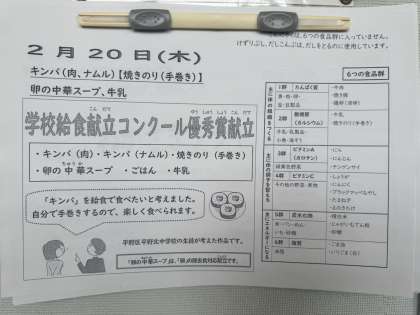 は、6つの食品群に入っていません。
けずりぶし、だしこんぶは、だしをとるのに使用しています。
2月20日(木)
キンパ(肉、ナムル)【焼きのり(手巻き)】
卵の中華スープ、牛乳
学校給食献立コンクール優秀賞献立
・キンパ(肉)・キンパ(ナムル)・焼きのり(手巻き)
・卵の中華スープ ・ごはん ・牛乳
「キンパ」を給食で食べたいと考えました。
自分で手巻きするので、楽しく食べられます。
平野区平野北中学校の生徒が考えた作品です。
「卵の中華スープ」は、「卵」の除去食対応献立です。
6つの食品群
1群 たんぱく質
魚・肉・卵・
豆・豆製品
・牛肉
・焼き豚
・鶏卵(液卵)
2群 無機質
(カルシウム)
牛乳・乳製品・
小魚・海そう
・牛乳
・焼きのり(手巻き)
3群 ビタミンA
(カロテン)
緑黄色野菜
・にら
・にんじん
・チンゲンサイ
4群 ビタミンC
その他の野菜・果物
・しょうが
・にんにく
・たまねぎ
・えのきたけ
5群 炭水化物
米・パン・めん
いも・砂糖
・精白米
・じゃがいもでん粉
・砂糖
6群 脂質
油脂
・ごま油
・いりごま(白)